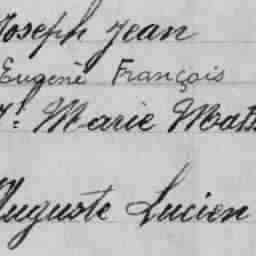 Joseph Jean
Eugène François
Marie
Auguste Lucien